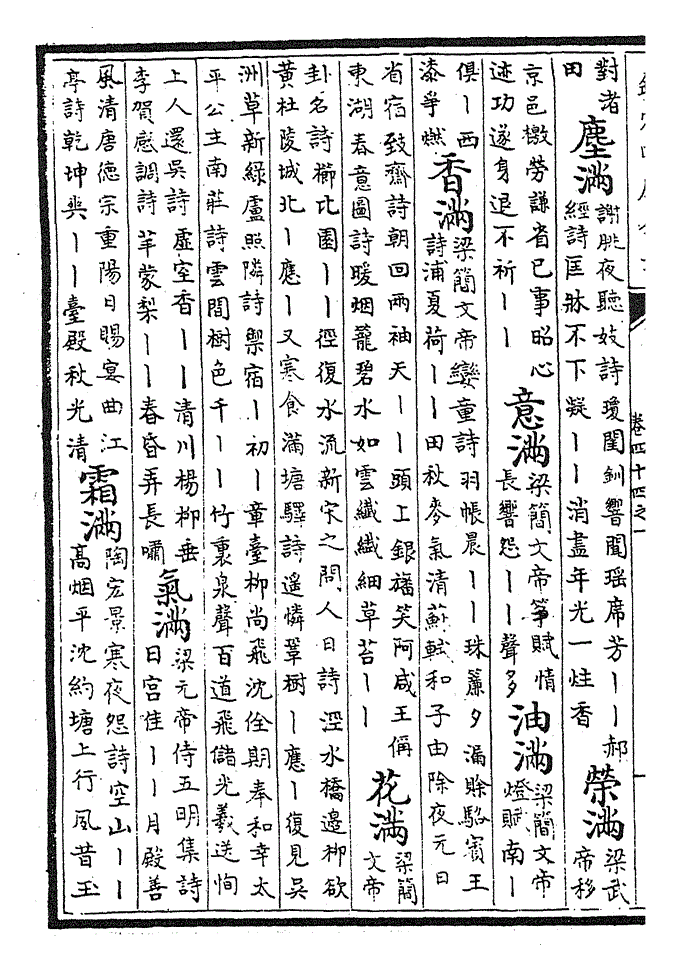 對渚
田
塵滿
謝朓夜聽妓詩瓊閨釧響聞瑶席芳丨丨郝
經詩匡牀不下凝丨丨消盡年光一炷香
榮滿
梁武
帝移
京邑檄勞謙省已事昭心
迹功遂身退不祈丨丨
意滿
梁簡文帝箏賦情
長響怨丨丨聲多
油滿
梁簡文帝
燈賦南丨
俱丨西
漆爭燃
香滿
梁簡文帝孌童詩羽帳晨丨丨珠簾夕漏賒駱賓王
詩浦夏荷丨丨田秋麥氣清蘇軾和子由除夜元日
省宿致齋詩朝回兩袖天丨丨頭上銀旛笑阿咸王偁
東湖春意圖詩暖烟籠碧水如雲纖纖細草苔丨丨
花滿
梁簡
文帝
卦名詩櫛比園丨丨徑復水流新宋之問人日詩澀水橋邊柳欲
黄杜陵城北丨應丨又寒食滿塘驛詩遥憐鞏樹丨應丨復見吳
洲草新綠盧照隣詩禦宿丨初丨章臺柳尚飛沈佺期奉和幸太
平公主南莊詩雲間樹色千丨丨竹裏泉聲百道飛儲光羲送恂
上人還吳詩虛室香丨丨清川楊柳垂
李賀感調詩芊蒙梨丨丨春昏弄長嘯
氣滿
梁元帝侍五明集詩
日宫佳丨丨月殿善
風清唐德宗重陽日賜宴曲江
亭詩乾坤爽丨丨臺殿秋光清
霜滿
陶宏景寒夜怨詩空山丨丨
高烟平沈約塘上行風昔玉
卷四十四之一